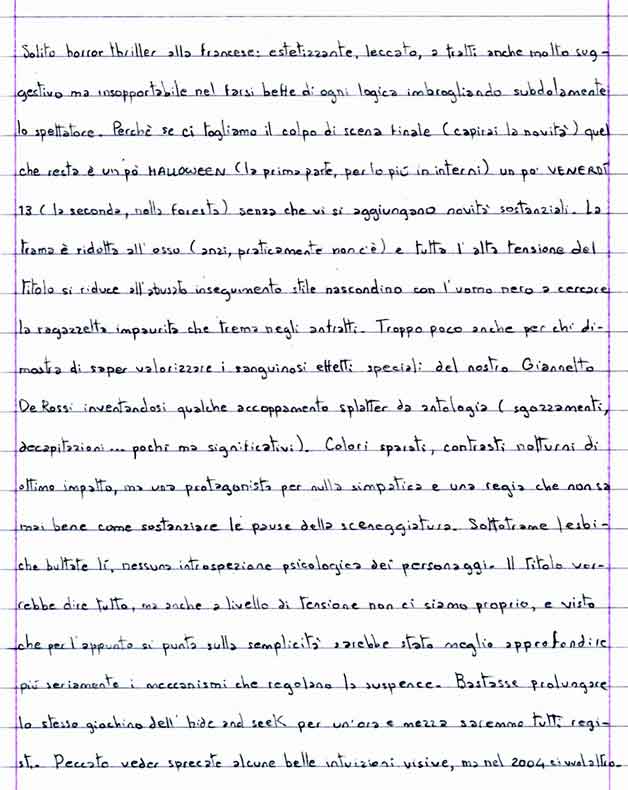 Solito horror thriller alla francese: estetizzante, leccato, a tratti anche molto sug-
gestivo ma insopportabile nel farsi beffe di ogni logica imbrogliando subdolamente
lo spettatore. Perchè se ci togliamo il colpo di scena finale (capirai la novità) quel
che resta è un pò HALLOWEEN (la prima parte, per lo più in interni) un po' VENERDÌ
13 (la seconda, nella foresta) senza che vi si aggiungano novità sostanziali. La
trama è ridotta all'osso (anzi, praticamente non c'è) e tutta l'alta tensione del
titolo si riduce all'abusato inseguimento stile nascondino con l'uomo nero a cercare
la ragazzetta impaurita che trema negli anfratti. Troppo poco anche per chi di-
mostra di saper valorizzare i sanguinosi effetti speciali del nostro Giannetto
De Rossi inventandosi qualche accoppamento splatter da antologia (sgozzamenti,
decapitazioni... pochi ma significativi). Colori sparati, contrasti notturni di
ottimo impatto, ma una protagonista per nulla simpatica e una regia che non sa
mai bene come sostanziare le pause della sceneggiatura. Sottotrame lesbi-
che buttate lì, nessuna introspezione psicologica dei personaggi. Il titolo vor-
rebbe dire tutto, ma anche a livello di tensione non ci siamo proprio, e visto
che per l'appunto si punta sulla semplicità sarebbe stato meglio approfondire
più seriamente i meccanismi che regolano la suspence. Bastasse prolungare
lo stesso giochino dell'hide and seek per un'ora e mezza saremmo tutti regi-
sti. Peccato veder sprecate alcune belle intuizioni visive, ma nel 2004 ci vuol altro.